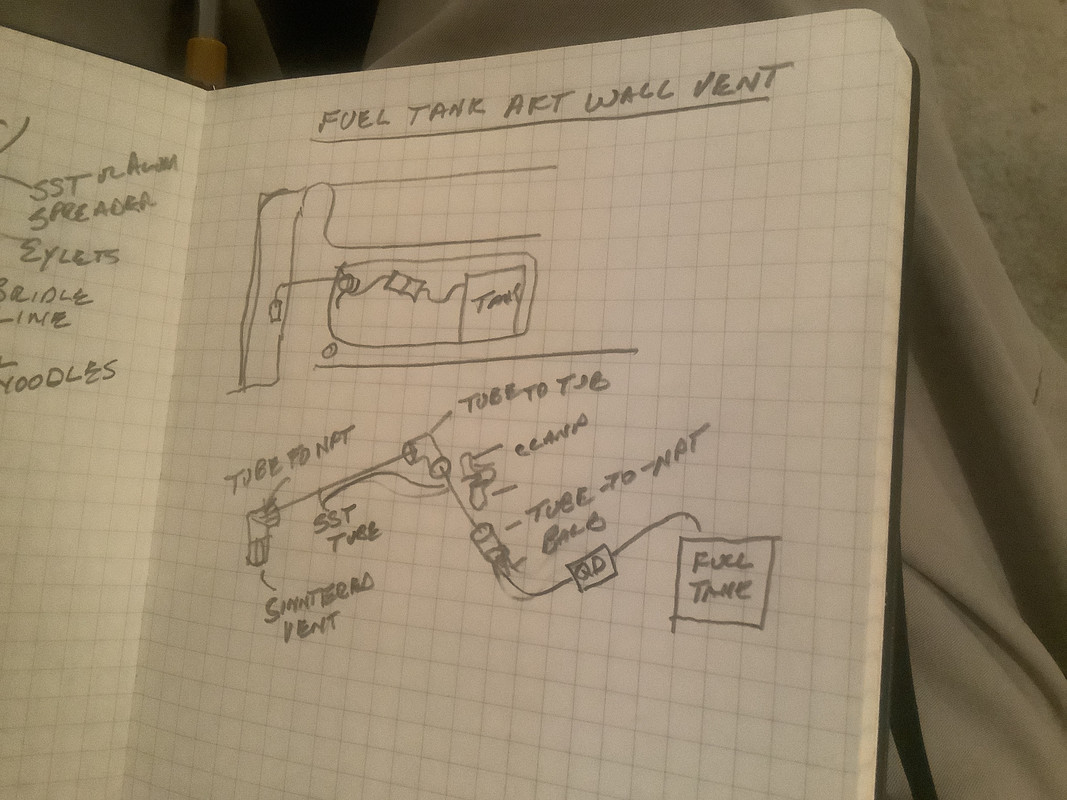 SST OR ALUM
SPREADER
EYLETS
BRIDLE
LINE
NOODLES
FUEL TANK AFT WALL VENT
TANK
TUBE TO TUB
TUBE TO NPT
CLAMP
SST
TUBE
TUBE-TO-NPT
BARB
QD
FUEL
TANK
SINNTERED
VENT